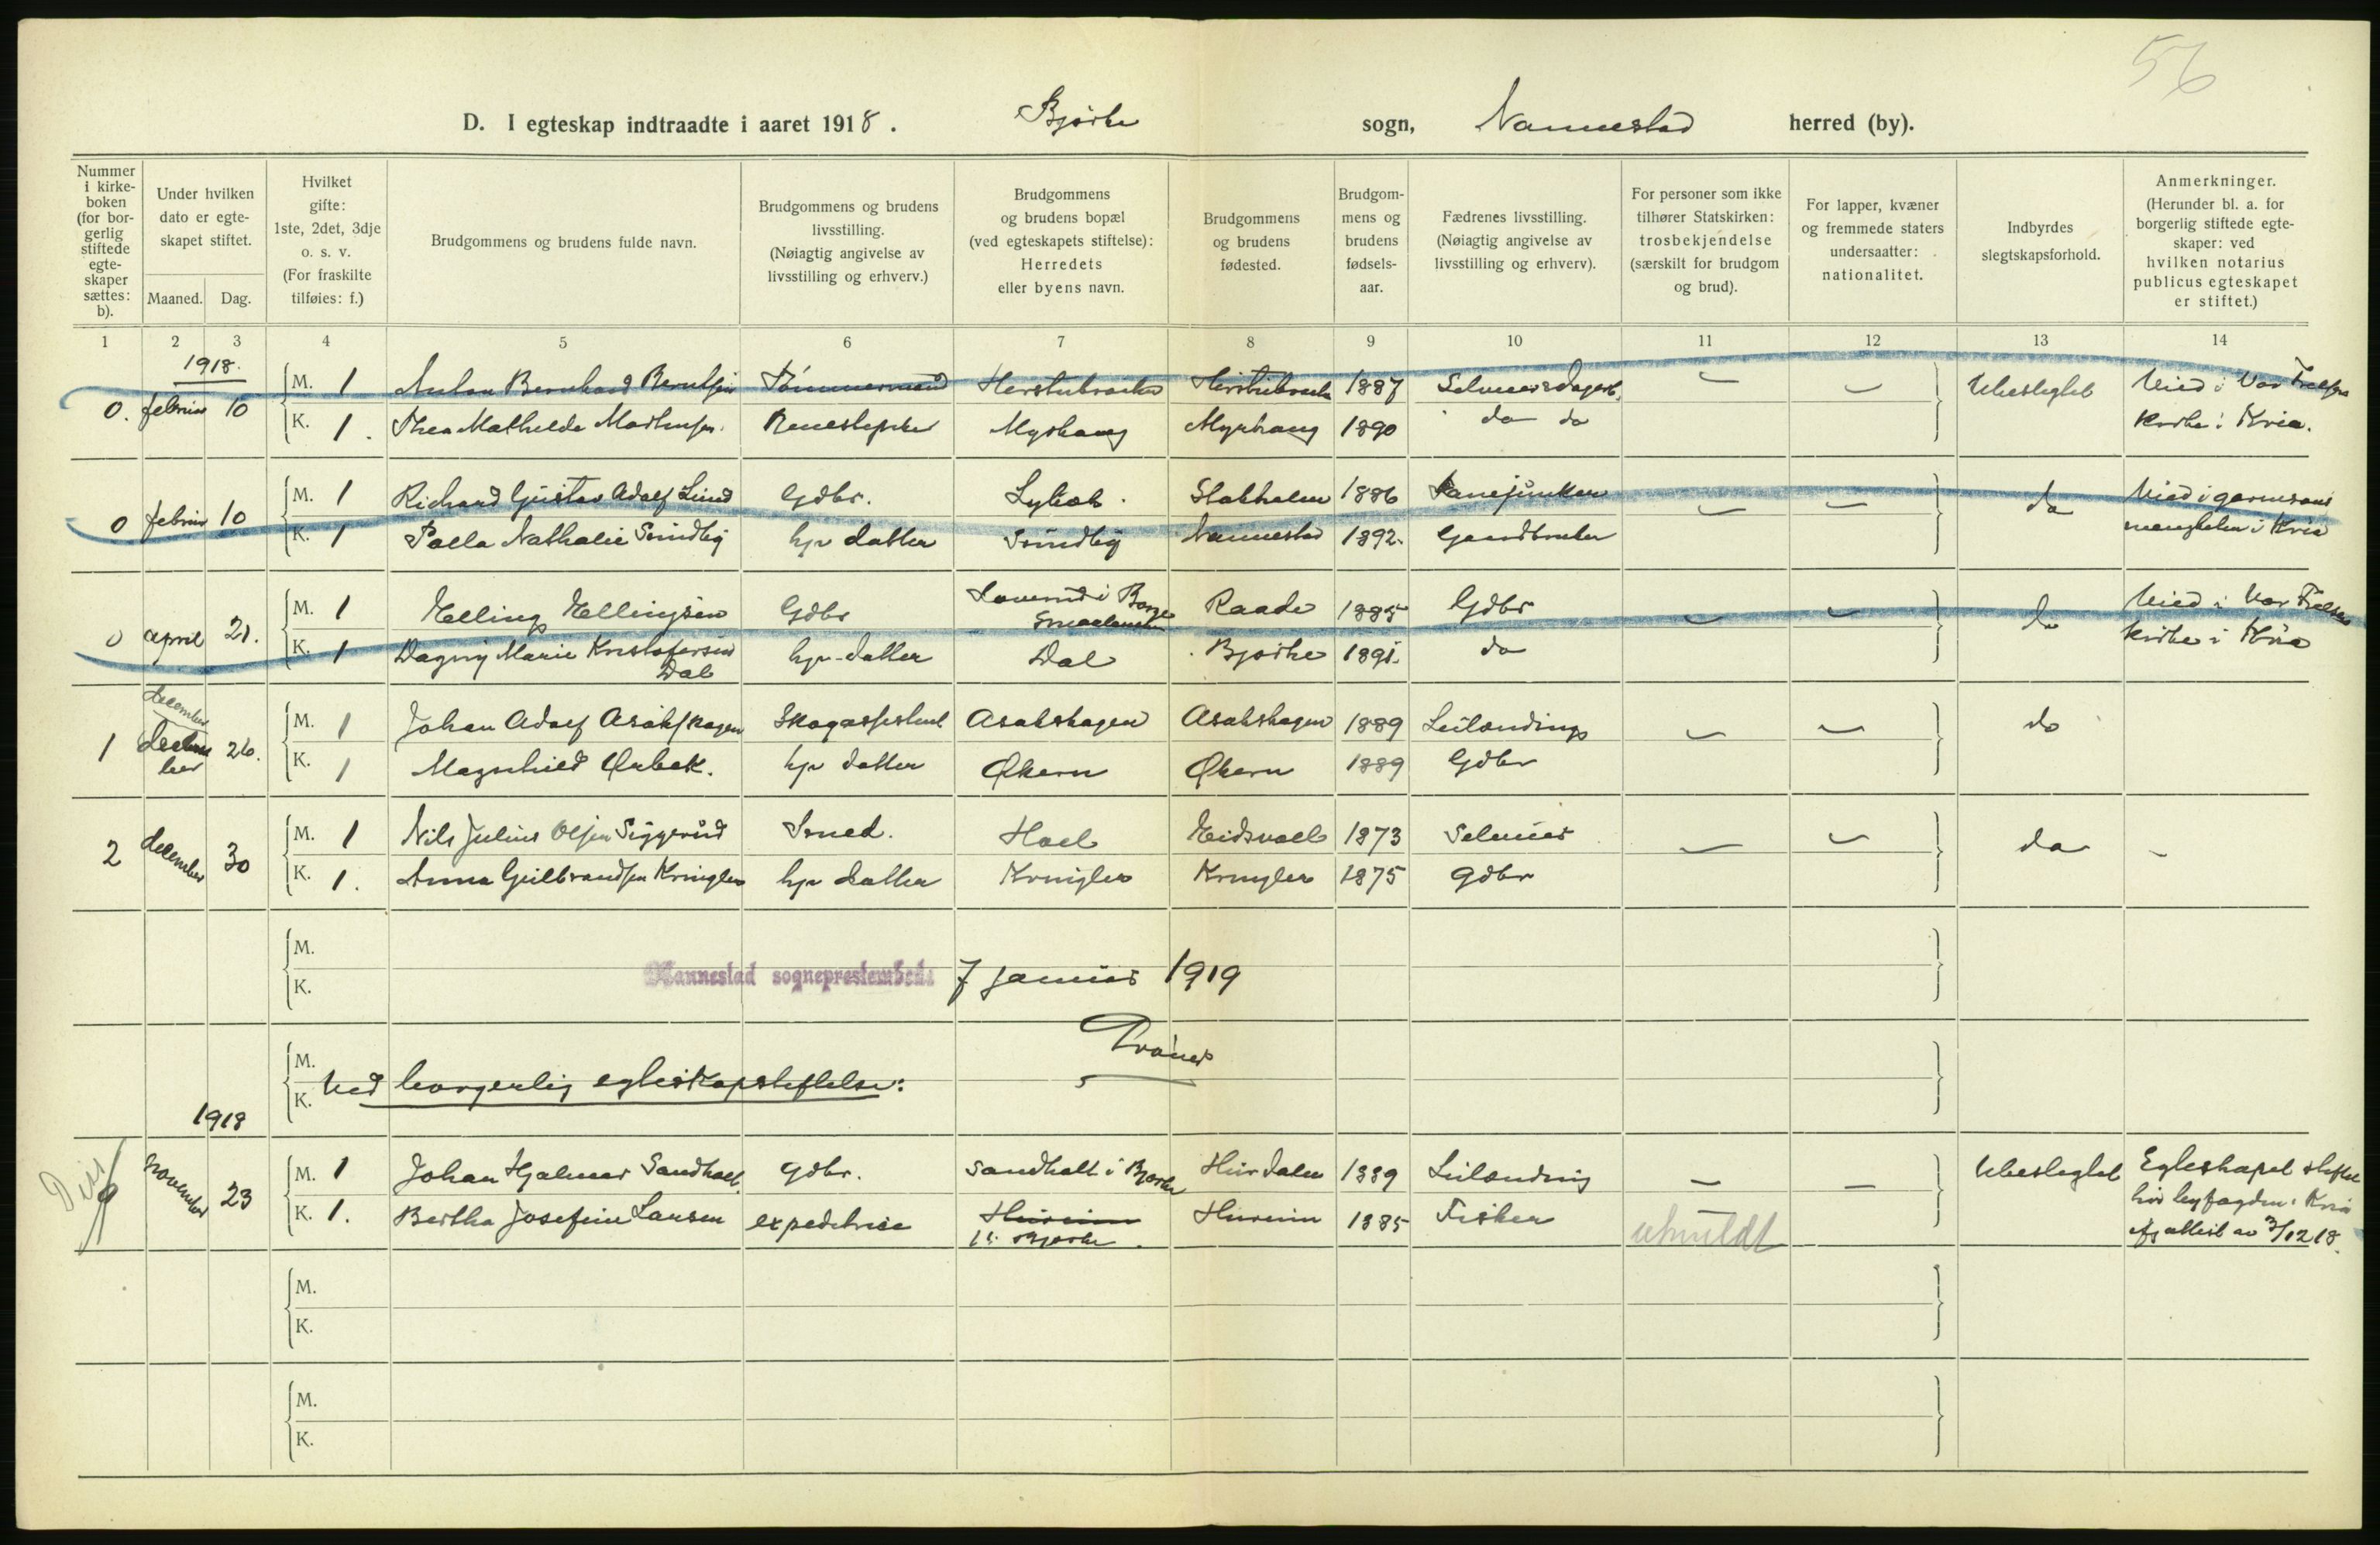 56
D. I egteskap indtraadte i aaret 1918. Bjørke sogn, Nannestad herred (by).
Nummer i kirke- boken (for bor- gerlig stiftede egte- skaper sættes: b).
Under hvilken dato er egte- skapet stiftet.
Maaned. Dag.
Hvilket gifte: 1ste, 2det, 3dje o. s. v. (For fraskilte tilføies: f.)
Brudgommens og brudens fulde navn.
Brudgommens og brudens livsstilling. (Nøiagtig angivelse av livsstilling og erhverv.)
Brudgommens og brudens bopæl (ved egteskapets stiftelse): Herredets eller byens navn.
Brudgommens og brudens fødested.
Brudgom- mens og brudens fødsels- aar.
Fædrenes livsstilling. (Nøiagtig angivelse av livsstilling og erhverv).
For personer som ikke tilhører Statskirken: trosbekjendelse (særskilt for brudgom og brud).
For lapper, kvæner og fremmede staters undersaatter: nationalitet.
Indbyrdes slegtskapsforhold.
Anmerkninger. (Herunder bl. a. for borgerlig stiftede egte- skaper: ved hvilken notarius publicus egteskapet er stiftet.)
1 2 3 4 5 6 7 8 9 10 11 12 13 14
1918.
M. 1 Anton Bernhard Berntsen Tømmermand 1887 Ubeslegtet Viet i Vor Frelsers
0. februar 10
K. 1. Thea Mathilde Mathisen. Myrhaug Myrhaug 1890 do do kirke i Kria.
M. 1 Richard Gustav Adolf Lund Gdbr. Stokholm 1886 Fanejunker
0 februar 10 do Viet i garnisons
K. 1 Nathalie Sundby hj. datter Sundby Nannestad 1892. Gaardbruker menigheten i Kria
M. 1 Elling Ellingsen Gdbr i Borge Smaalenene Raade 1885 Gdbr
0 april 21. do Viet i Vor Frelsers
K. 1 Dagny Marie Kristofersen Dal hj. datter Dal Bjørke 1891. do kirke i Kria
december
M. 1 Johan Adolf Asakskagen Skogassistent Asakskagen Asakskagen 1889 Leilænding
1 december 26. do
K. 1 Magnhild Ørbek. hj. datter Økern Økern 1889 Gdbr
M. 1 Nils Julius Olsen Siggerud Smed. Hoel Eidsvold 1873 Selveier
2 december 30 da
K. 1. Anna Gulbrandsen Kringler hj. datter Kringler Kringler 1875 Gdbr
M.
K.
Nannestad sogneprestembede 7 januar 1919
M.
K.
Ved borgerlig egteskapstiftelse:
1918
M. 1 Johan Hjalmar Gdbr. i Bjørke Hurdalen 1889 Leilænding Ubeslegtet Egteskapet stiftet
november 23 hos byfogden i Kria
K. 1. Bertha Josefine Larsen expeditrice Bjørke. 1885 Fisker uhuldt attest av 3/12 18.
M.
K.
M.
K.